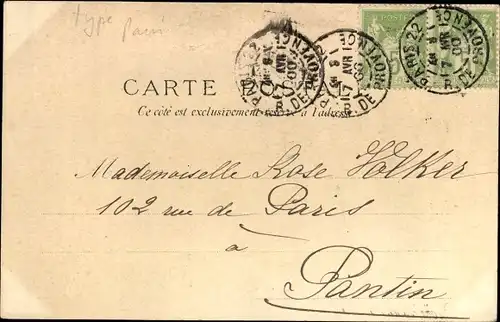 type
PARIS 22 R. DE PROVENCE
17 AVRIL 00
CARTE POSTALE
Ce côté est exclusivement réservé à l'adresse
Mademoiselle Rose Völker
102 rue de Paris
à
Pantin